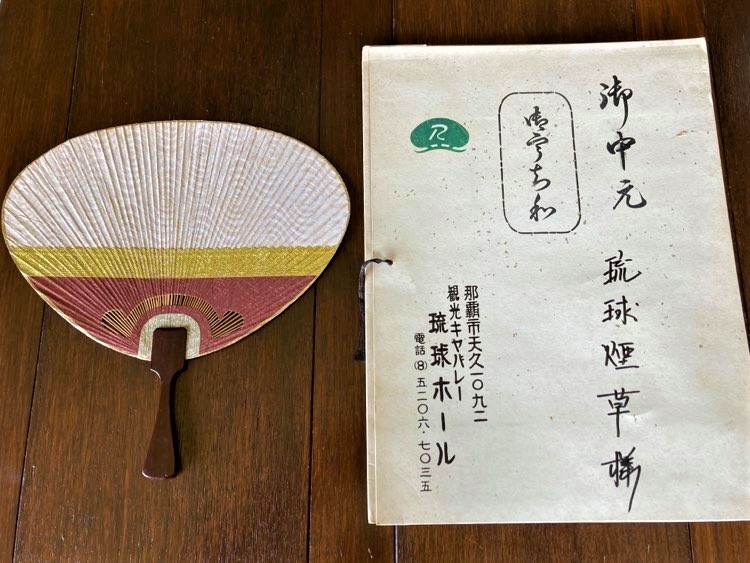 御中元
琉球煙草様
御うちわ
那覇市天久一〇九二
観光キャバレー
琉球ホール
電話⑧五二〇六・七〇三五